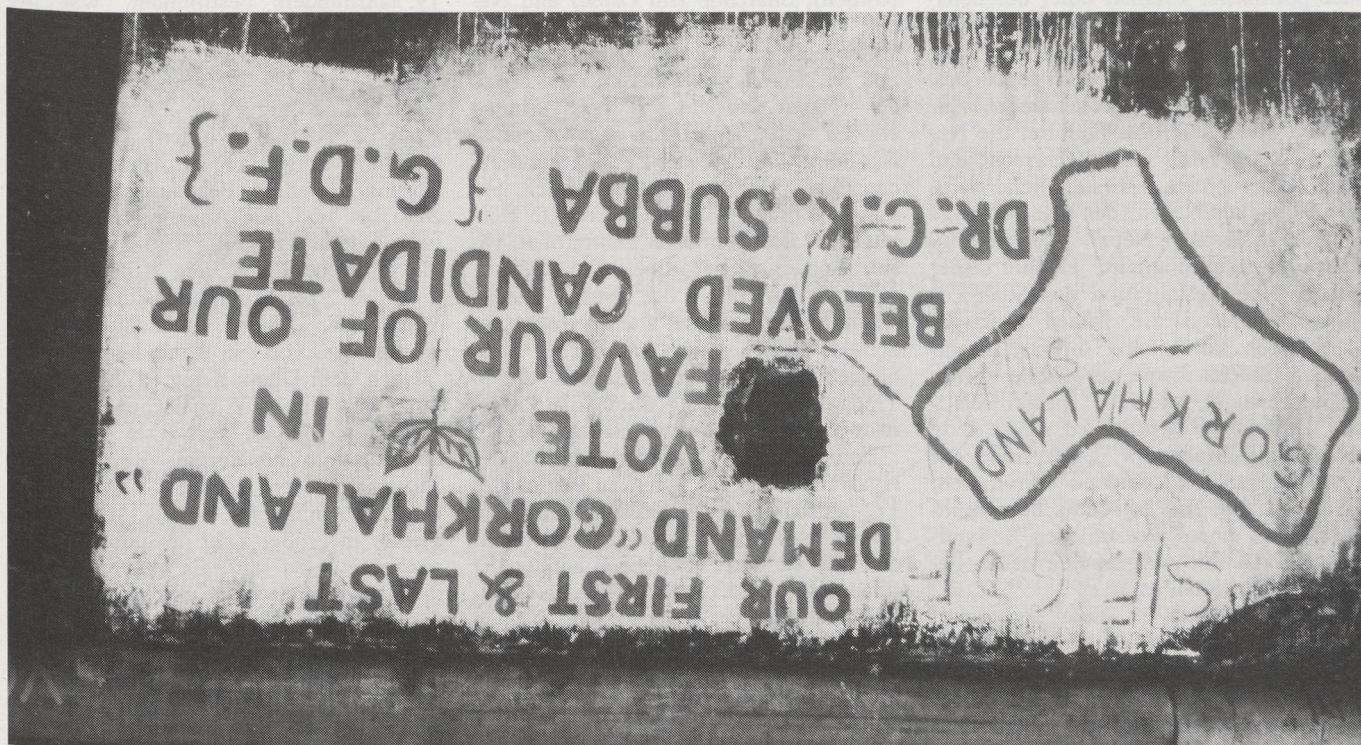 OUR FIRST & LAST
DEMAND "GORKHALAND"
VOTE IN
FAVOUR OF OUR
BELOVED CANDIDATE
DR. C.K. SUBBA {G.D.F.}
GORKHALAND